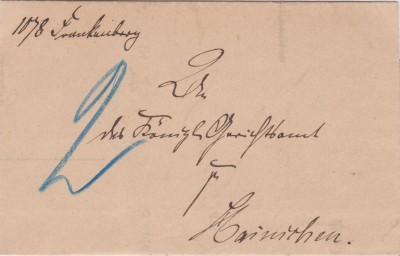 1078 Frankenberg
2
An
das Königl. Gerichtsamt
Hainichen.